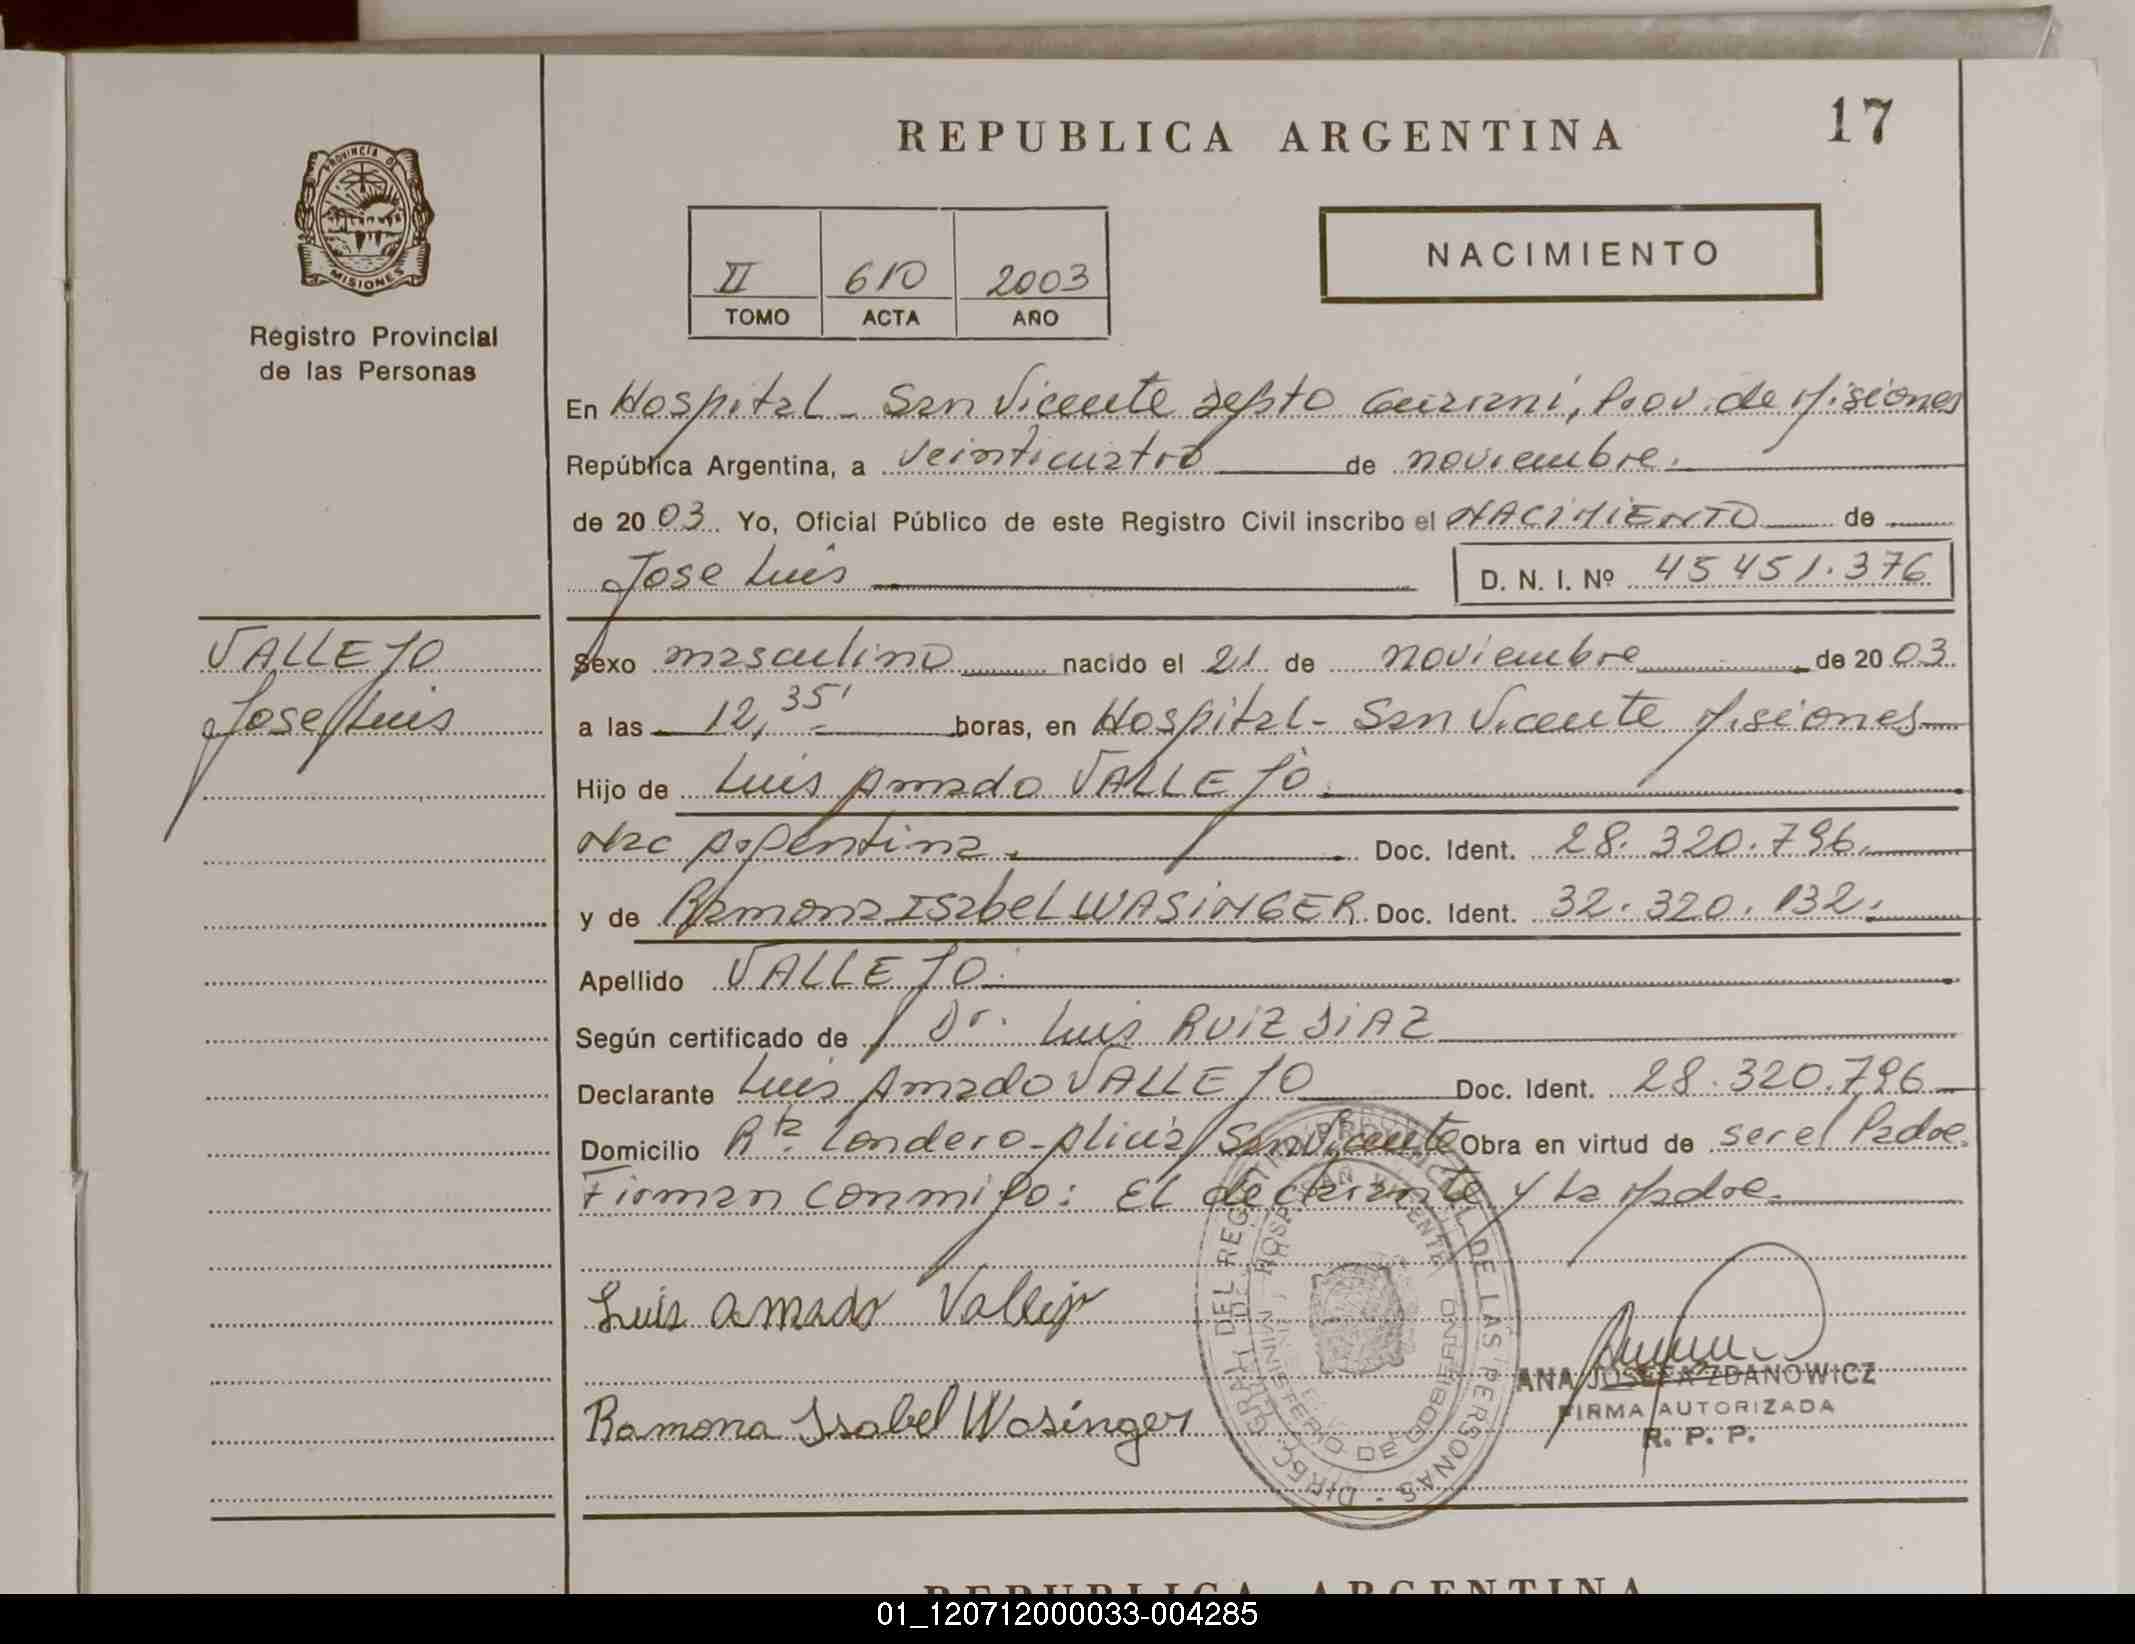 REPUBLICA ARGENTINA
17
PROVINCIA DE
MISIONES
Registro Provincial
de las Personas
II 610 2003
TOMO ACTA AÑO
NACIMIENTO
En Hospital - San Vicente Depto Guarani, Prov. de Misiones
República Argentina, a veinticuatro de noviembre.
de 2003. Yo, Oficial Público de este Registro Civil inscribo el NACIMIENTO de
Jose Luis D. N. I. Nº 45451.376
VALLEJO
Jose Luis
Sexo masculino nacido el 21 de noviembre de 2003
a las 12,35' horas, en Hospital - San Vicente Misiones
Hijo de Luis Amado VALLEJO
Nac Argentina. Doc. Ident. 28.320.796.
y de Ramona Isabel WASINGER Doc. Ident. 32.320.132.
Apellido VALLEJO.
Según certificado de Dr. Luis RUIZ DIAZ
Declarante Luis Amado VALLEJO Doc. Ident. 28.320.796
Domicilio Rta. Londero - Alicia San Vicente Obra en virtud de ser el Padre.
Firman conmigo: El declarante y la Madre.
Luis amado Vallejo
Ramona Isabel Wasinger
DIRECC. GRAL. DEL REGISTRO PROVINCIAL DE LAS PERSONAS -
HOSP. SAN VICENTE
MINISTERIO DE GOBIERNO
ANA JOSEFA ZDANOWICZ
FIRMA AUTORIZADA
R. P. P.
REPUBLICA ARGENTINA
01_120712000033-004285